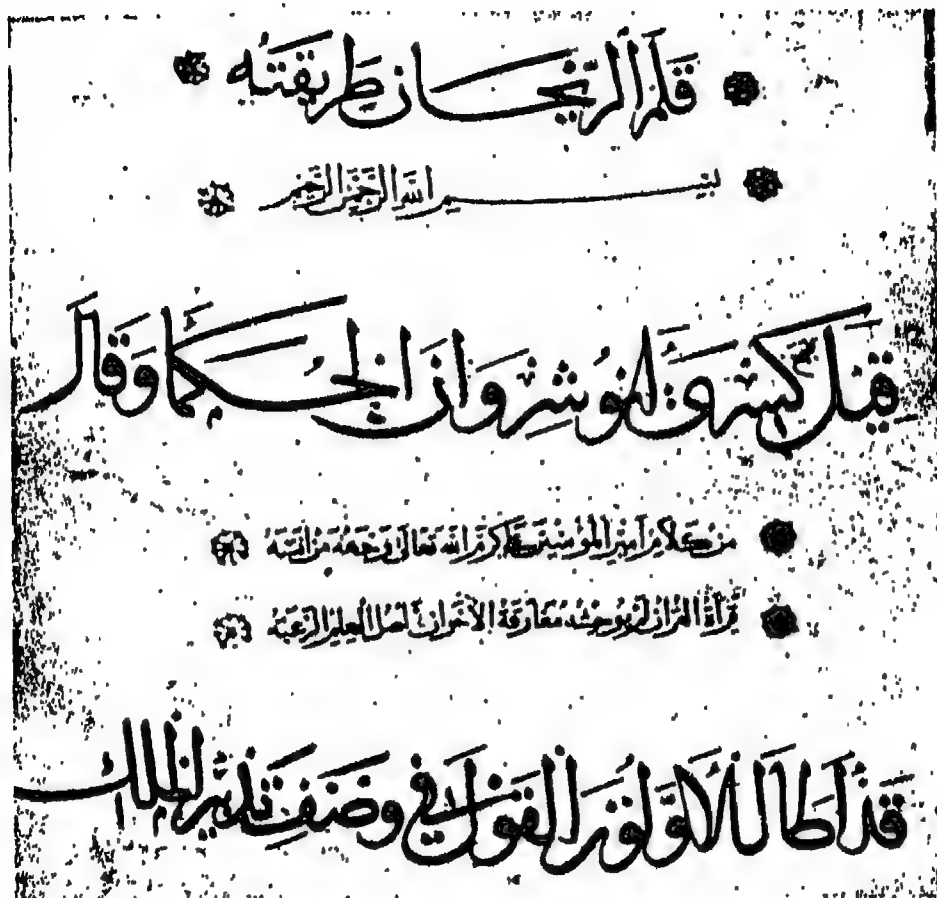 قلم الريحان طريقته
بسم الله الرحمن الرحيم
قيل كسرى انوشروان الحكما وقال
من كلام امير المؤمنين كرم الله تعالى وجهه من انسه
قراة القران لم يوحشه مفارقة الاخوان اصل العلم الرغبة
قد أطال الاولون القول في وصف تدبير الملك